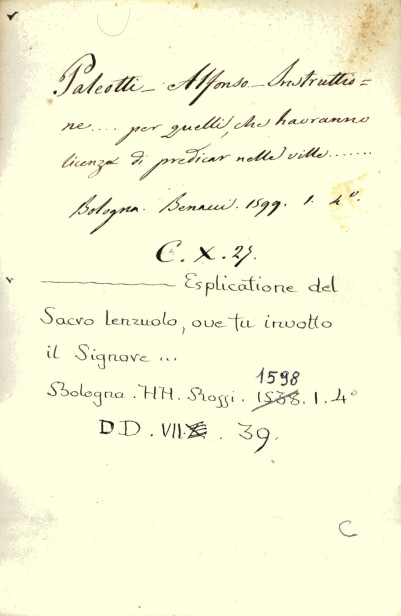 Paleotti - Alfonso - Instruttio=
ne.... per quelli, che havranno
licenza di predicar nelle ville.......
Bologna. Benacci. 1599. 1. 4°.
C. X. 27.
Esplicatione del
Sacro lenzuolo, ove fu involto
il Signore ...
1598
Bologna. HH. Rossi. 1538. 1. 4°
DD. VII X. 39.
C